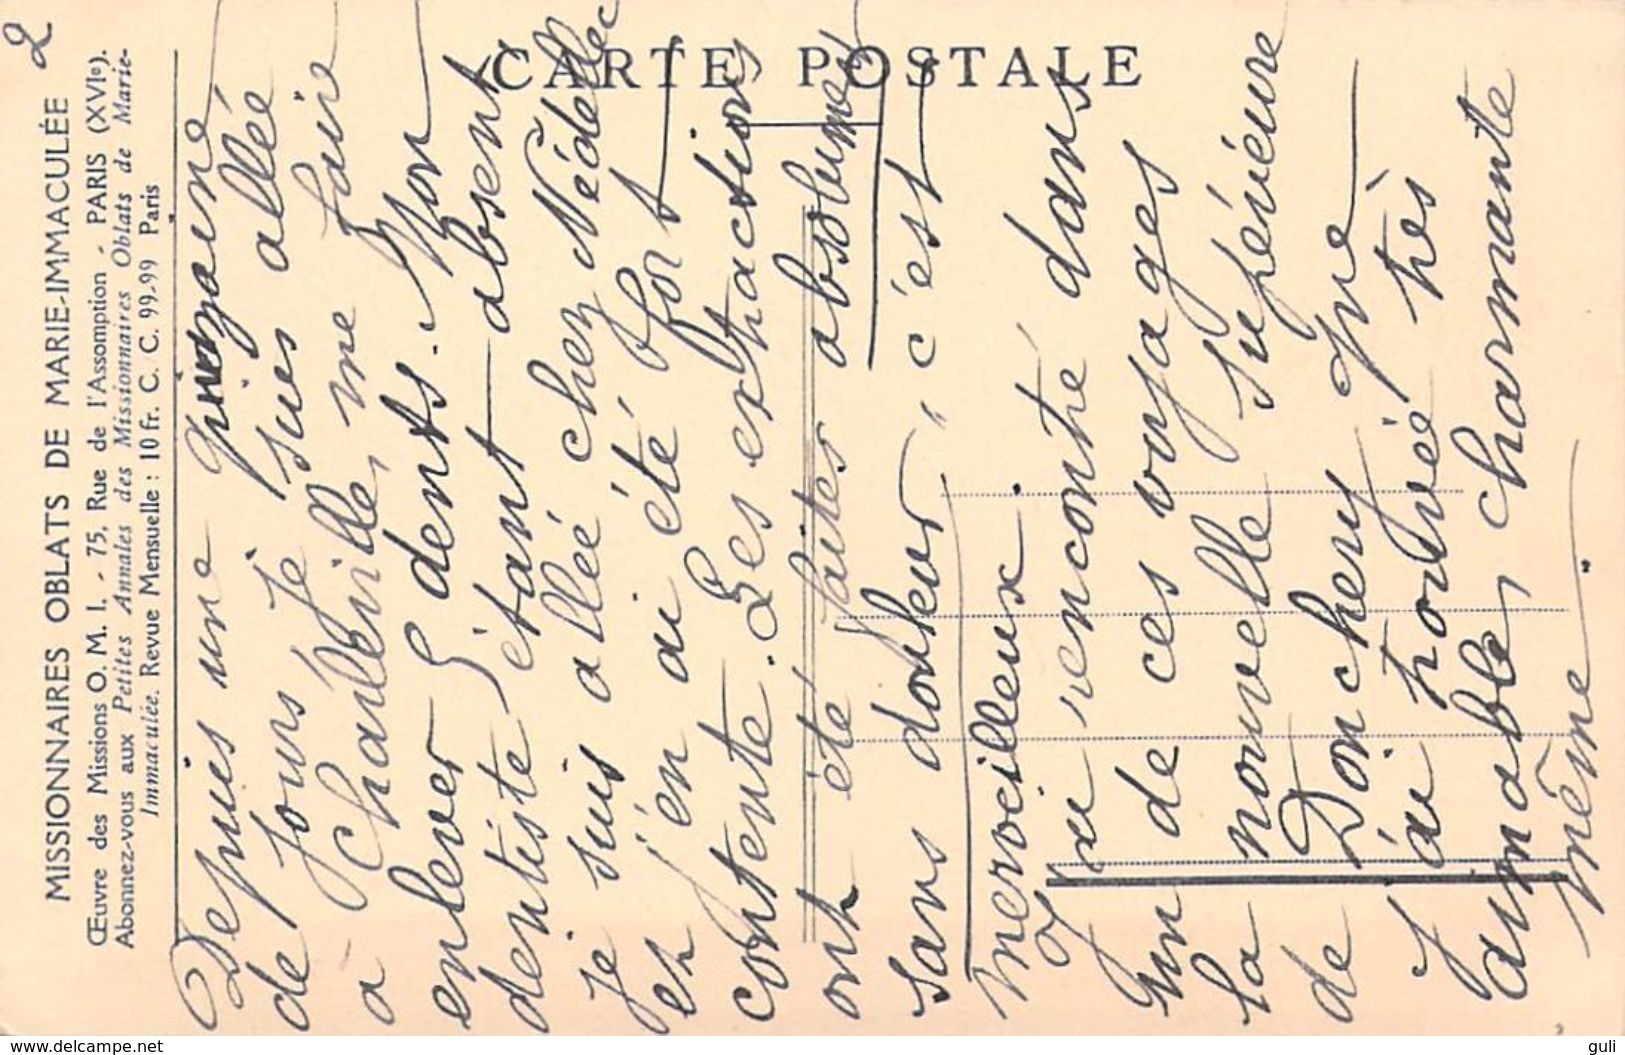 2
MISSIONNAIRES OBLATS DE MARIE-IMMACULÉE
Œuvre des Missions O. M. I. - 75, Rue de l'Assomption - PARIS (XVIe).
Abonnez-vous aux Petites Annales des Missionnaires Oblats de Marie-
Immaculée. Revue Mensuelle : 10 Fr. C. C. 99-99 Paris
CARTE POSTALE
Depuis une quinzaine
de jours je suis allée
à Charleville, me faire
enlever 5 dents. Mon
dentiste étant absent
je suis allée chez Nédellec
et j'en ai été fort
contente. Les extractions
ont été faites absolument
sans douleur, c'est
merveilleux.
J'ai rencontré dans
un de ces voyages
la nouvelle supérieure
de Donchery que
j'ai trouvée très
aimable, charmante
même.
www.delcampe.net
guli